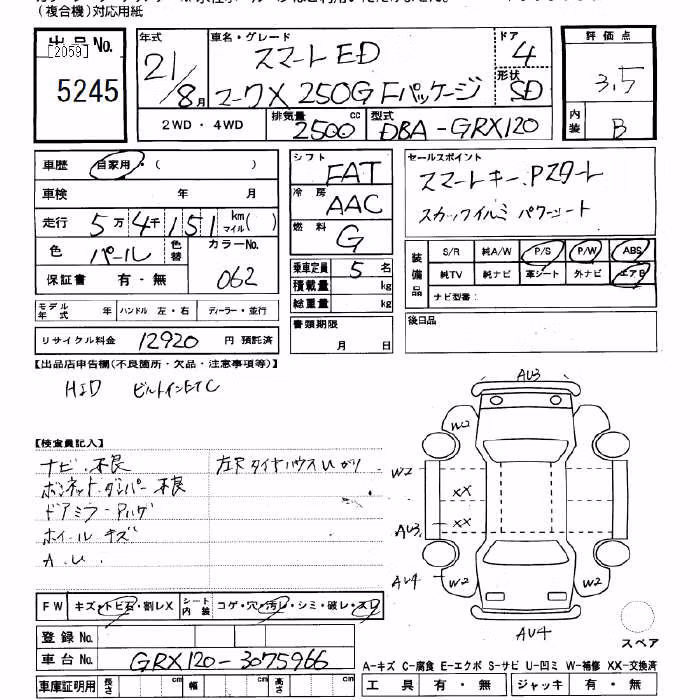 (複合機)対応用紙
出品No.
[2059]
5245
年式
21/8月
車名・グレード
スマートED
マークX 250G Fパッケージ
ドア
4
形状
SD
2WD・4WD
排気量
2500
cc
型式
DBA-GRX120
評価点
3.5
内装
B
車歴 自家用・( )
車検 年 月
走行 5万4千151 km マイル( )
色 パール 色替
カラーNo.
062
保証書 有・無
モデル年式 年 ハンドル 左・右 ディーラー・並行
リサイクル料金 12920 円 預託済
シフト
FAT
冷房
AAC
燃料
G
乗車定員 5 名
積載量 kg
総重量 kg
書類期限
月 日
セールスポイント
スマートキー、Pスタート
パワーシート
装備品
S/R 純A/W P/S P/W ABS
純TV 純ナビ 革シート 外ナビ エアB
ナビ型番:
後日品
【出品店申告欄(不良箇所・欠品・注意事項等)】
HID ビルトインETC
【検査員記入】
ナビ、不良
ボンネット、ダンパー不良
ドアミラー
ホイール キズ
A.U.
AU3
W2
W2
XX
AU3
XX
AU4
W2
W2
AU4
スペア
FW キズ・トビ石・割レX シート内装 コゲ・穴・汚レ・シミ・破レ・スレ
登録No.
車台No. GRX120-3075966
車庫証明用 長さ cm 幅 cm 高さ cm
A-キズ C-腐食 E-エクボ S-サビ U-凹ミ W-補修 XX-交換済
工具 有・無 ジャッキ 有・無